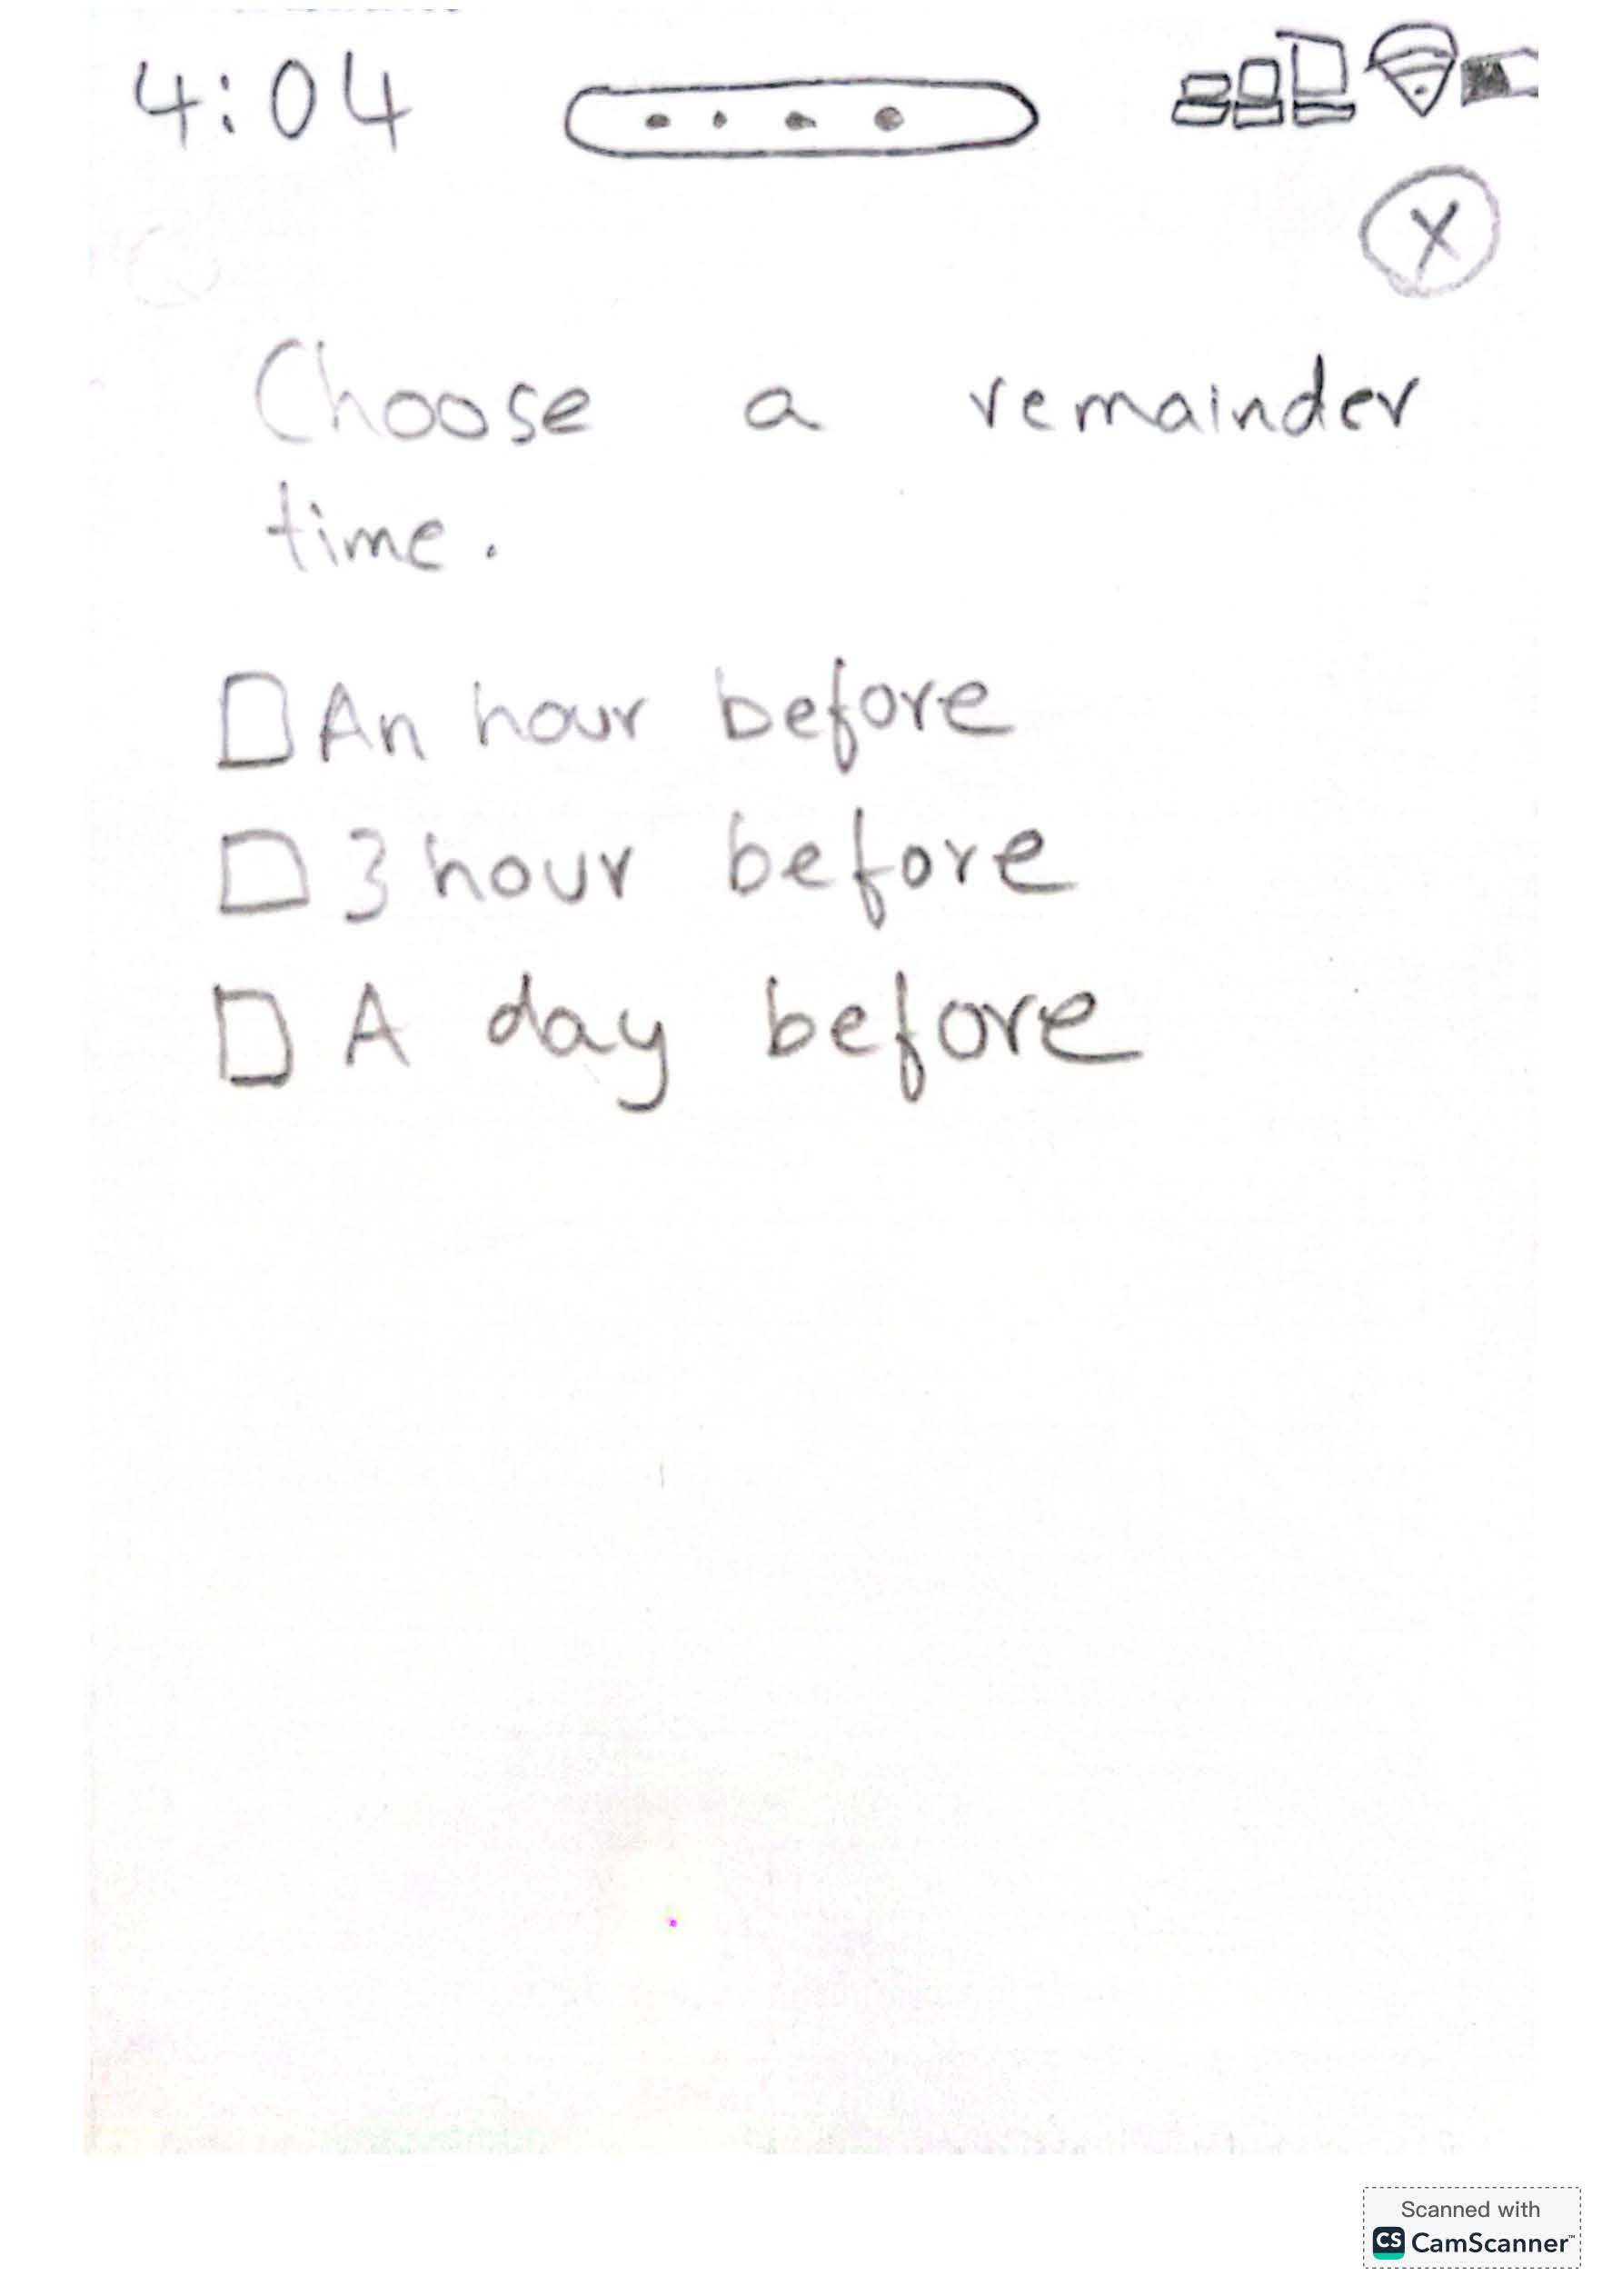 4:04
X
Choose a remainder
time.
An hour before
3 hour before
A day before
Scanned with
CS CamScanner™